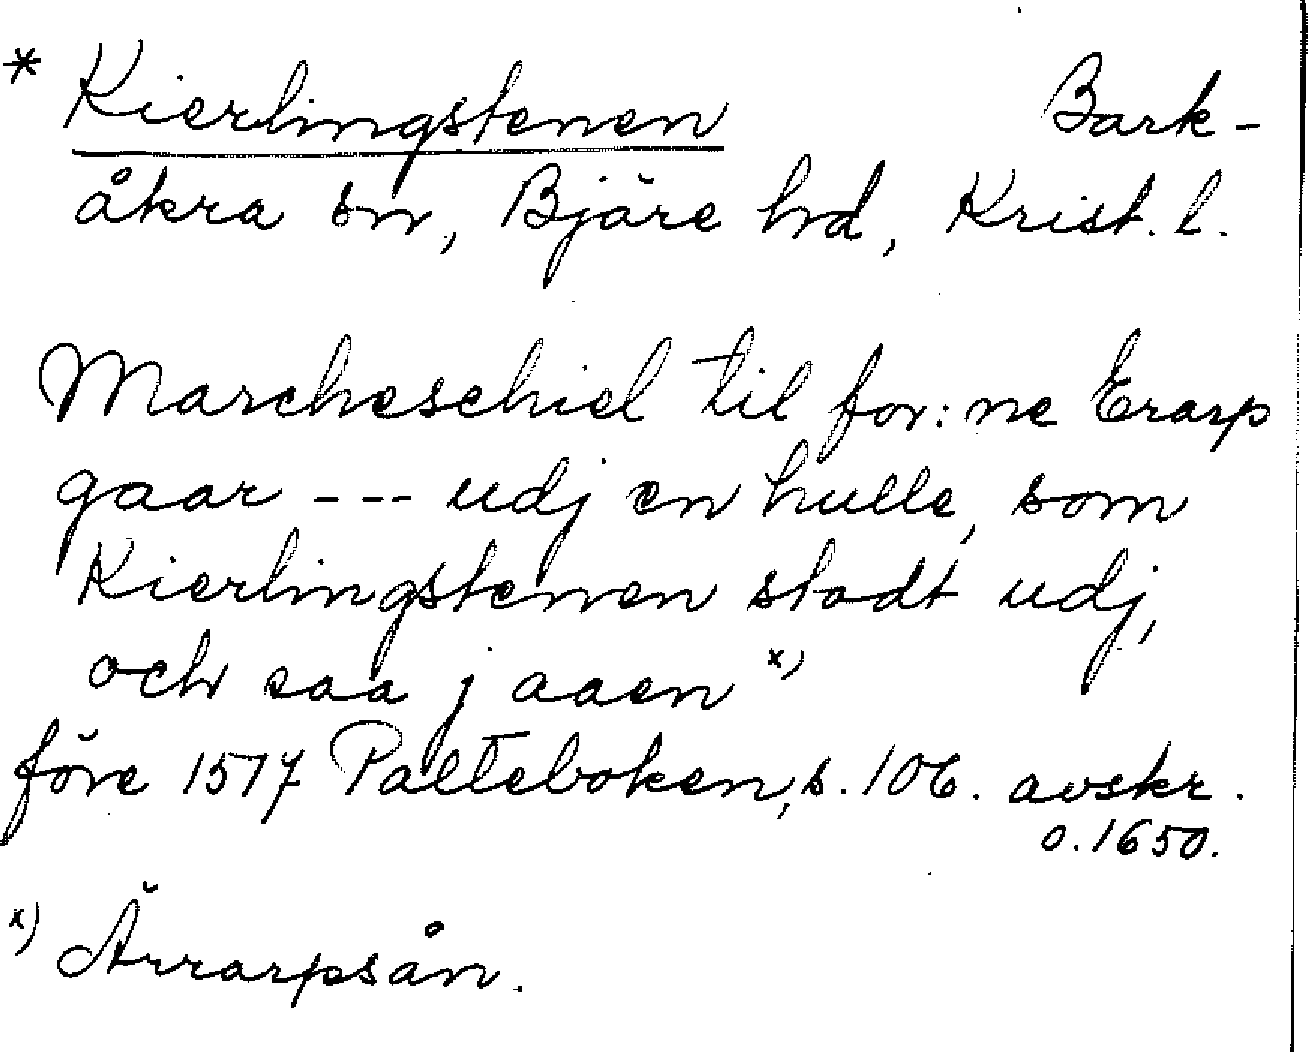 * Kierlingstenen Bark-
åkra sn, Bjäre hd, Krist. l.
Marcheschiel til for:ne Erarp
gaar --- udj en hulle, som
Kierlingstenen stodt udj,
och saa j aaen x)
före 1517 Palteboken, s. 106. avskr.
o. 1650.
x) Ärrarpsån.